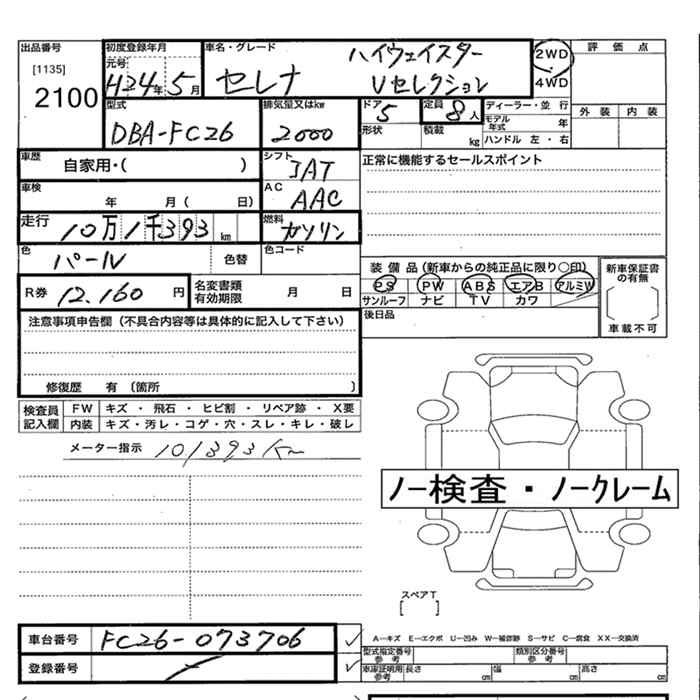 出品番号 初度登録年月 車名・グレード 評価点
[1135] 元号 ハイウェイスター 2WD
2100 H24年5月 セレナ Vセレクション 4WD
型式 排気量又はkw ドア 定員 ディーラー・並行 外装 内装
DBA-FC26 2000 5 8人 モデル年式 年
形状 積載 kg ハンドル 左・右
車歴 自家用・( ) シフト JAT 正常に機能するセールスポイント
車検 年 月( 日) AC AAC
走行 10万1千393km 燃料 ガソリン
色 パール 色替 色コード
装備品(新車からの純正品に限り○印) 新車保証書の有無
R券 12,160円 名変書類有効期限 月 日 PS PW ABS エアB アルミW
サンルーフ ナビ TV カワ
注意事項申告欄(不具合内容等は具体的に記入して下さい) 後日品 車載不可
修復歴 有 〔箇所 〕
検査員記入欄 FW キズ・飛石・ヒビ割・リペア跡・X要
内装 キズ・汚レ・コゲ・穴・スレ・キレ・破レ
メーター指示 101393Km
ノー検査・ノークレーム
スペアT
[ ]
車台番号 FC26-073706 A—キズ E—エクボ U—凹み W—補修跡 S—サビ C—腐食 XX—交換済
登録番号 型式指定番号参考 類別区分番号参考
車庫証明用参考 長さ cm 幅 cm 高さ cm